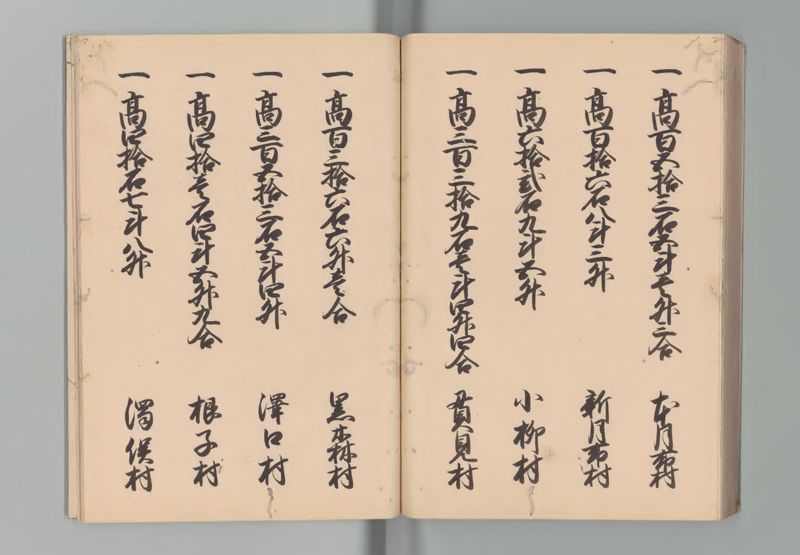 一 高百五拾三石五斗壱升二合 本月寄村
一 高百拾六石八斗三升 新月寄村
一 高六拾弐石九斗五升 小柳村
一 高三百三拾九石壱斗四升四合 貫見村
一 高百三拾六石六升壱合 黒森村
一 高二百五拾三石五斗四升 澤口村
一 高四拾壱石四斗五升九合 根子村
一 高四拾石七斗八升 濁俣村